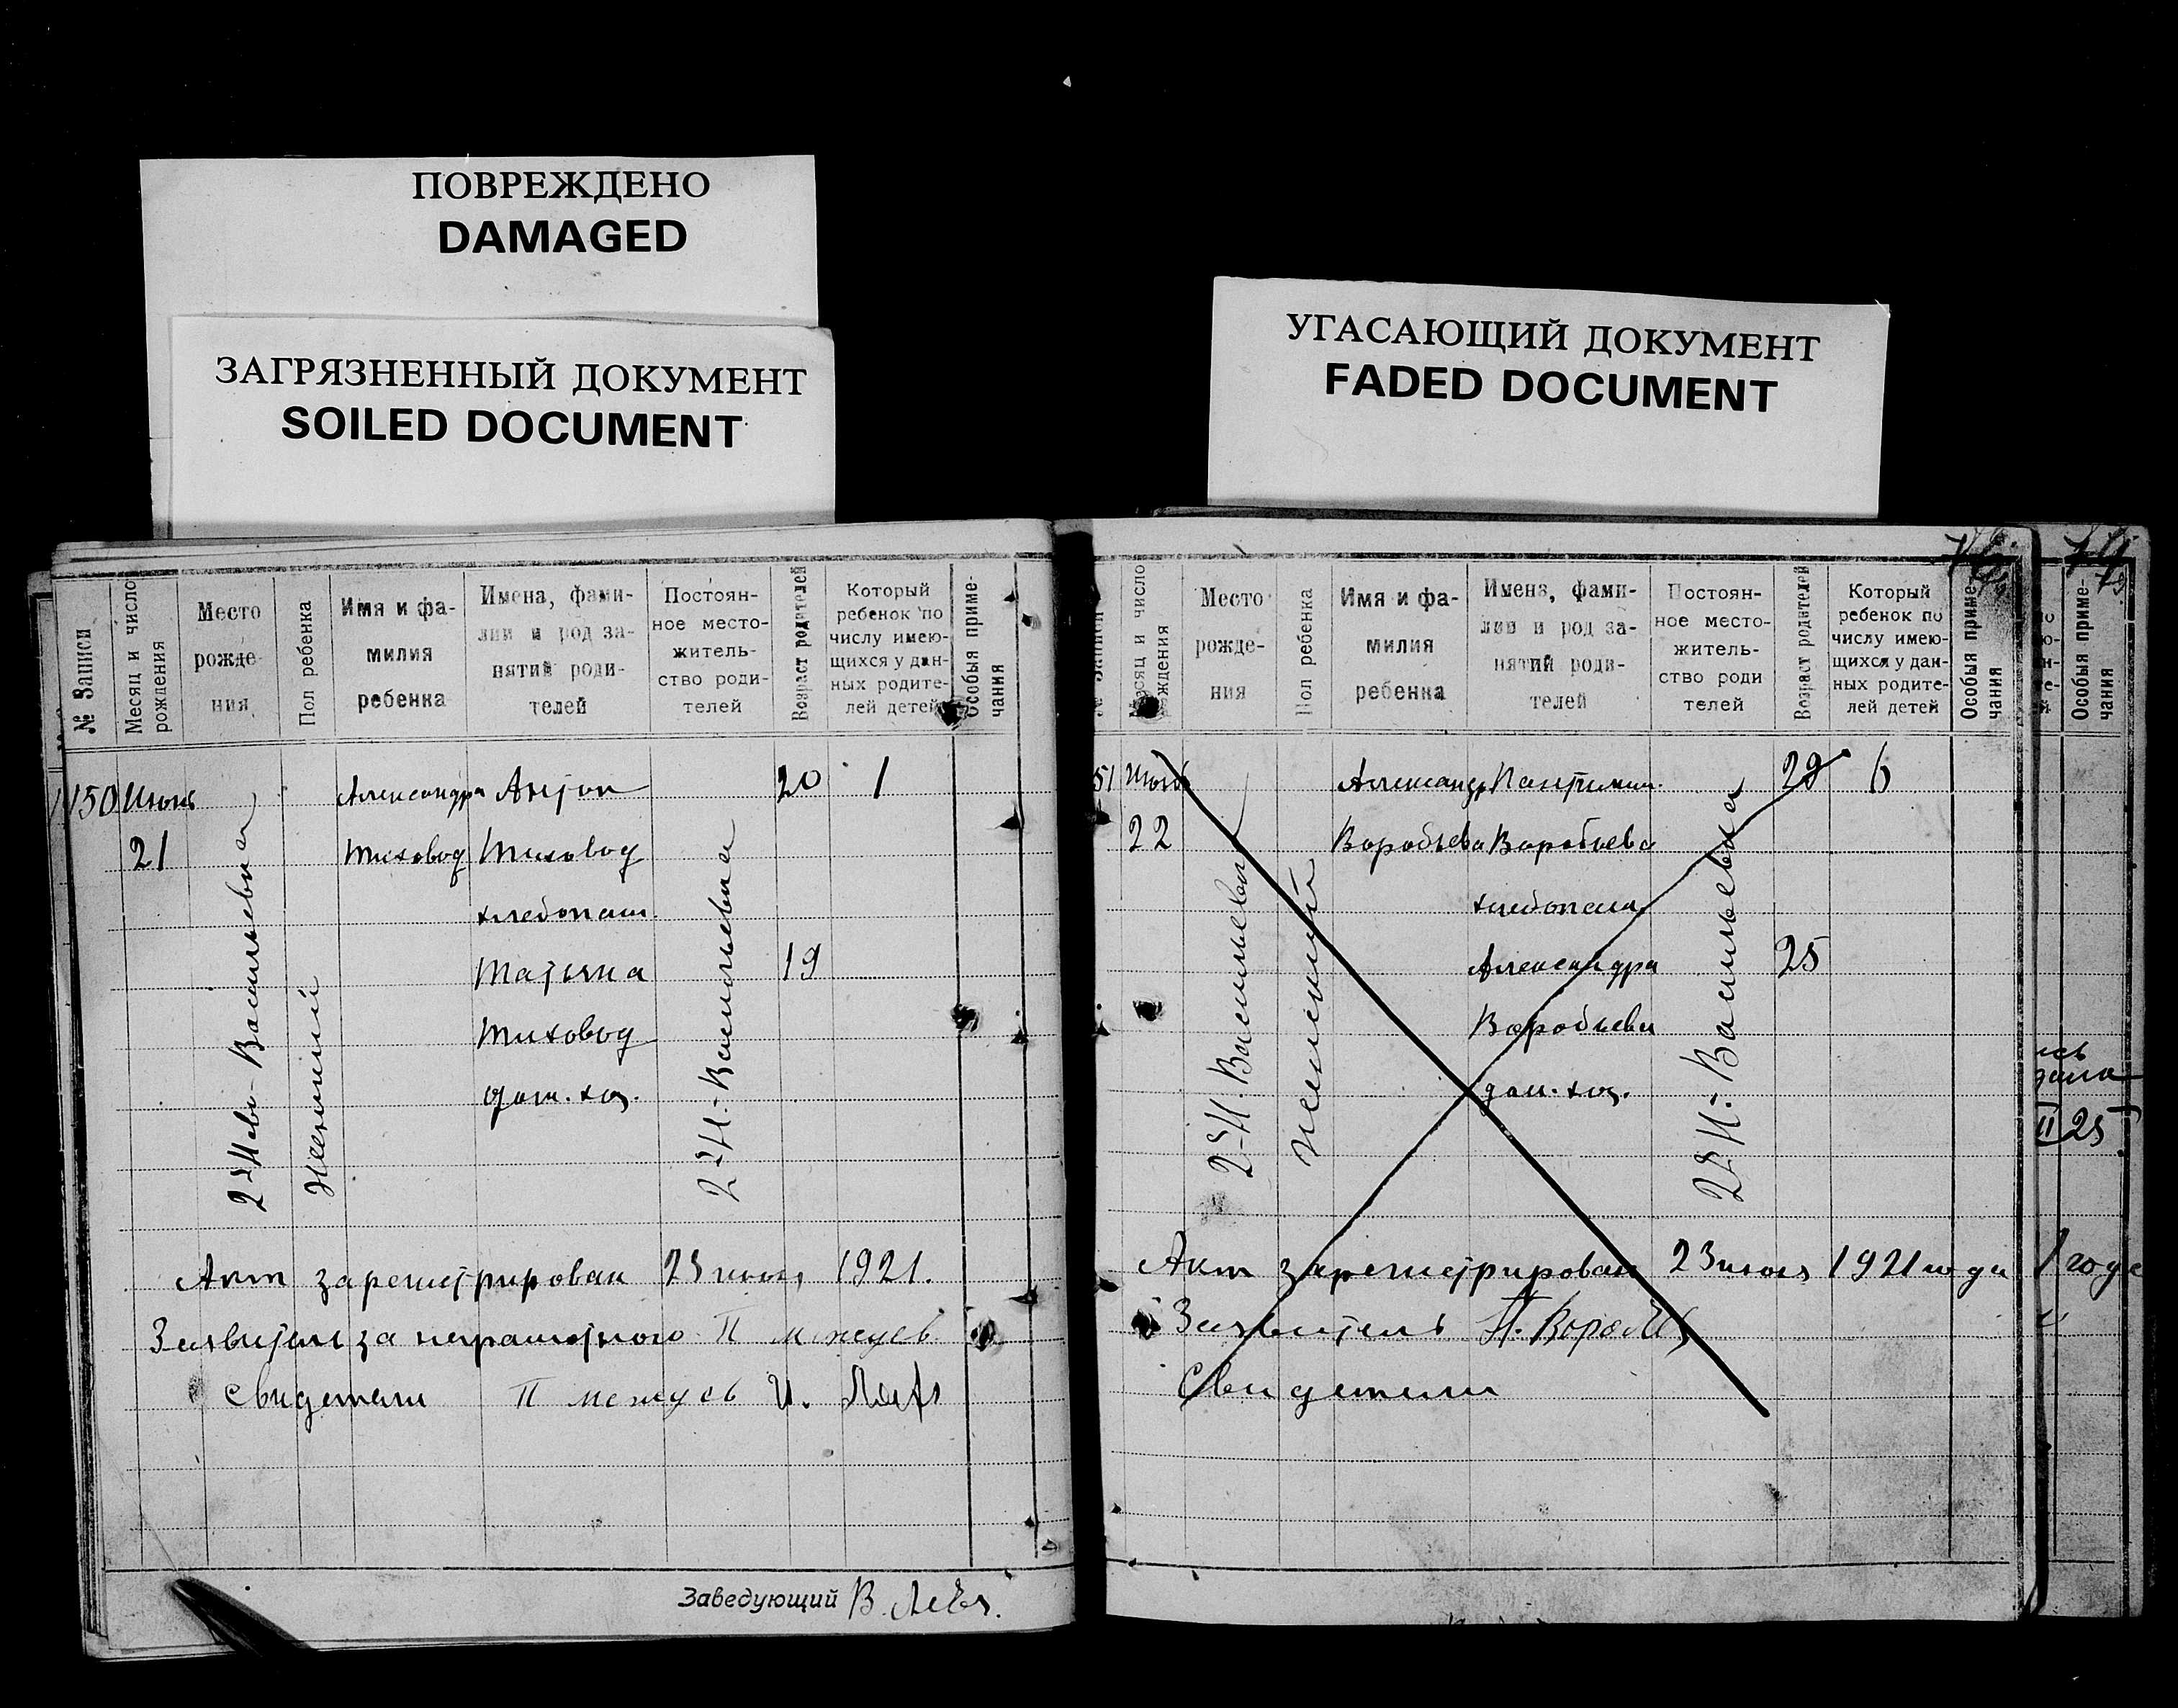 ПОВРЕЖДЕНО
DAMAGED
ЗАГРЯЗНЕННЫЙ ДОКУМЕНТ
SOILED DOCUMENT
УГАСАЮЩИЙ ДОКУМЕНТ
FADED DOCUMENT
№ Записи
Месяц и число
рождения
Место
рожде-
ния
Пол ребенка
Имя и фа-
милия
ребенка
Имена, фами-
лии и род за-
нятий роди-
телей
Постоян-
ное место-
житель-
ство роди-
телей
Возраст родителей
Который
ребенок по
числу имею-
щихся у дан-
ных родите-
лей детей
Особыя приме-
чания
150 Июнь Александра Антон 20 1
21 Тиховод Тиховод
хлебопаш.
Татьяна 19
Тиховод
дом. хоз.
2-Ново-Васильевка
Женский
2-Н.-Васильевка
Акт зарегистрирован 23 июня 1921.
Заявитель за неграмотного П
Свидетели П И.
Заведующий В.
Месяц и число
рождения
Место
рожде-
ния
Пол ребенка
Имя и фа-
милия
ребенка
Имена, фами-
лии и род за-
нятий роди-
телей
Постоян-
ное место-
житель-
ство роди
телей
Возраст родителей
Который
ребенок по
числу имею-
щихся у дан-
ных родите-
лей детей
Особыя приме-
чания
51 Июнь Александр 28 6
22 Воробьева Воробьева
хлебопаш.
Александра 25
Воробьева
дом. хоз.
2-Н. Васильевка
Женский
2-Н.-Васильевка
Акт зарегистрирован 23 июня 1921 года
Заявитель П.
Свидетели
Особыя приме-
чания
II 25
1 года